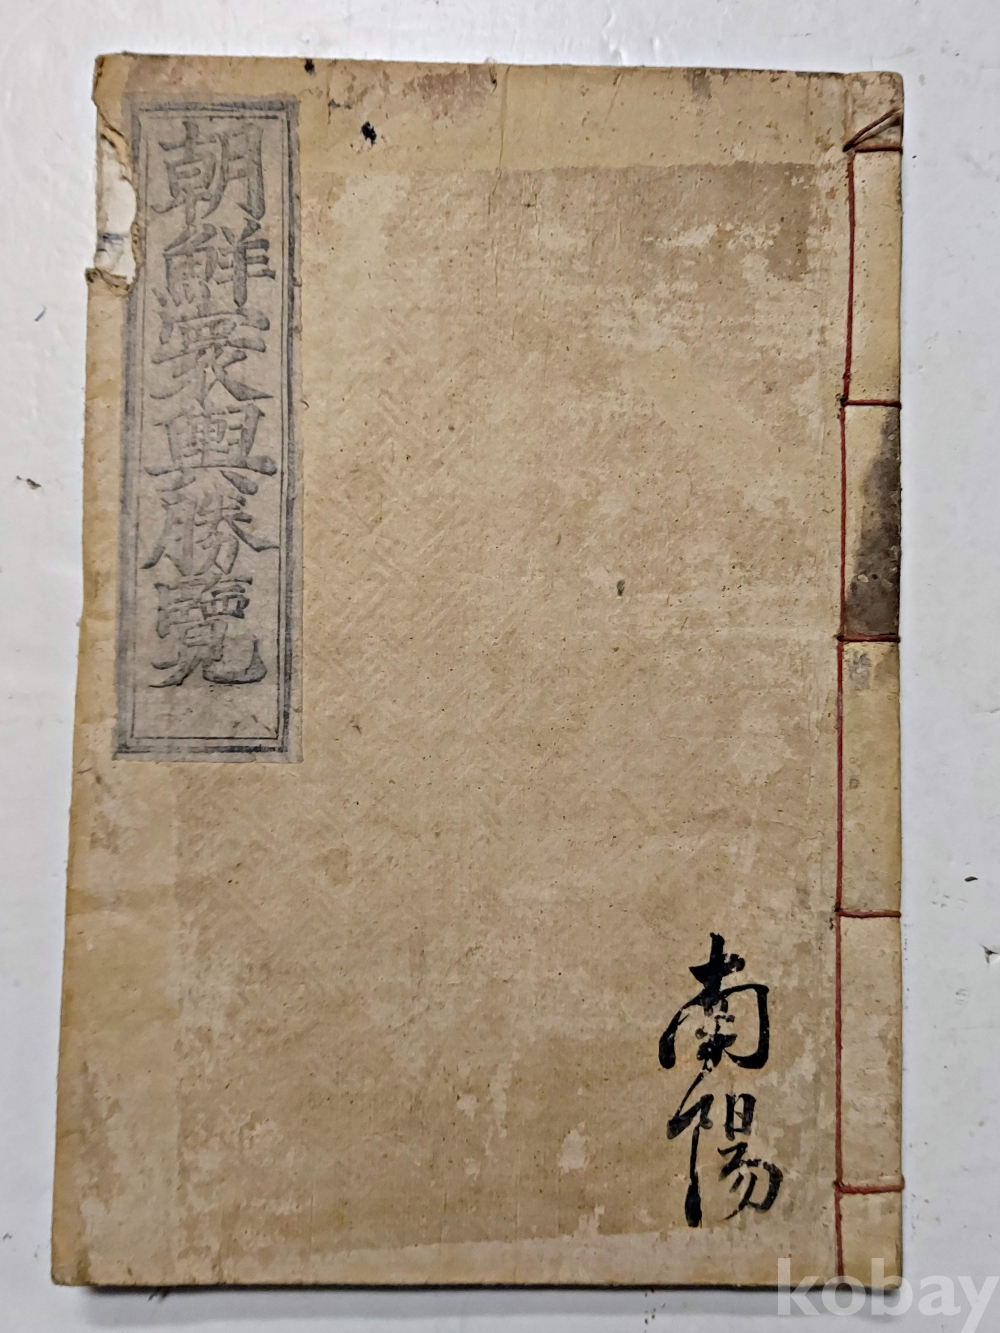 朝鮮寰輿勝覽
南陽
kobay